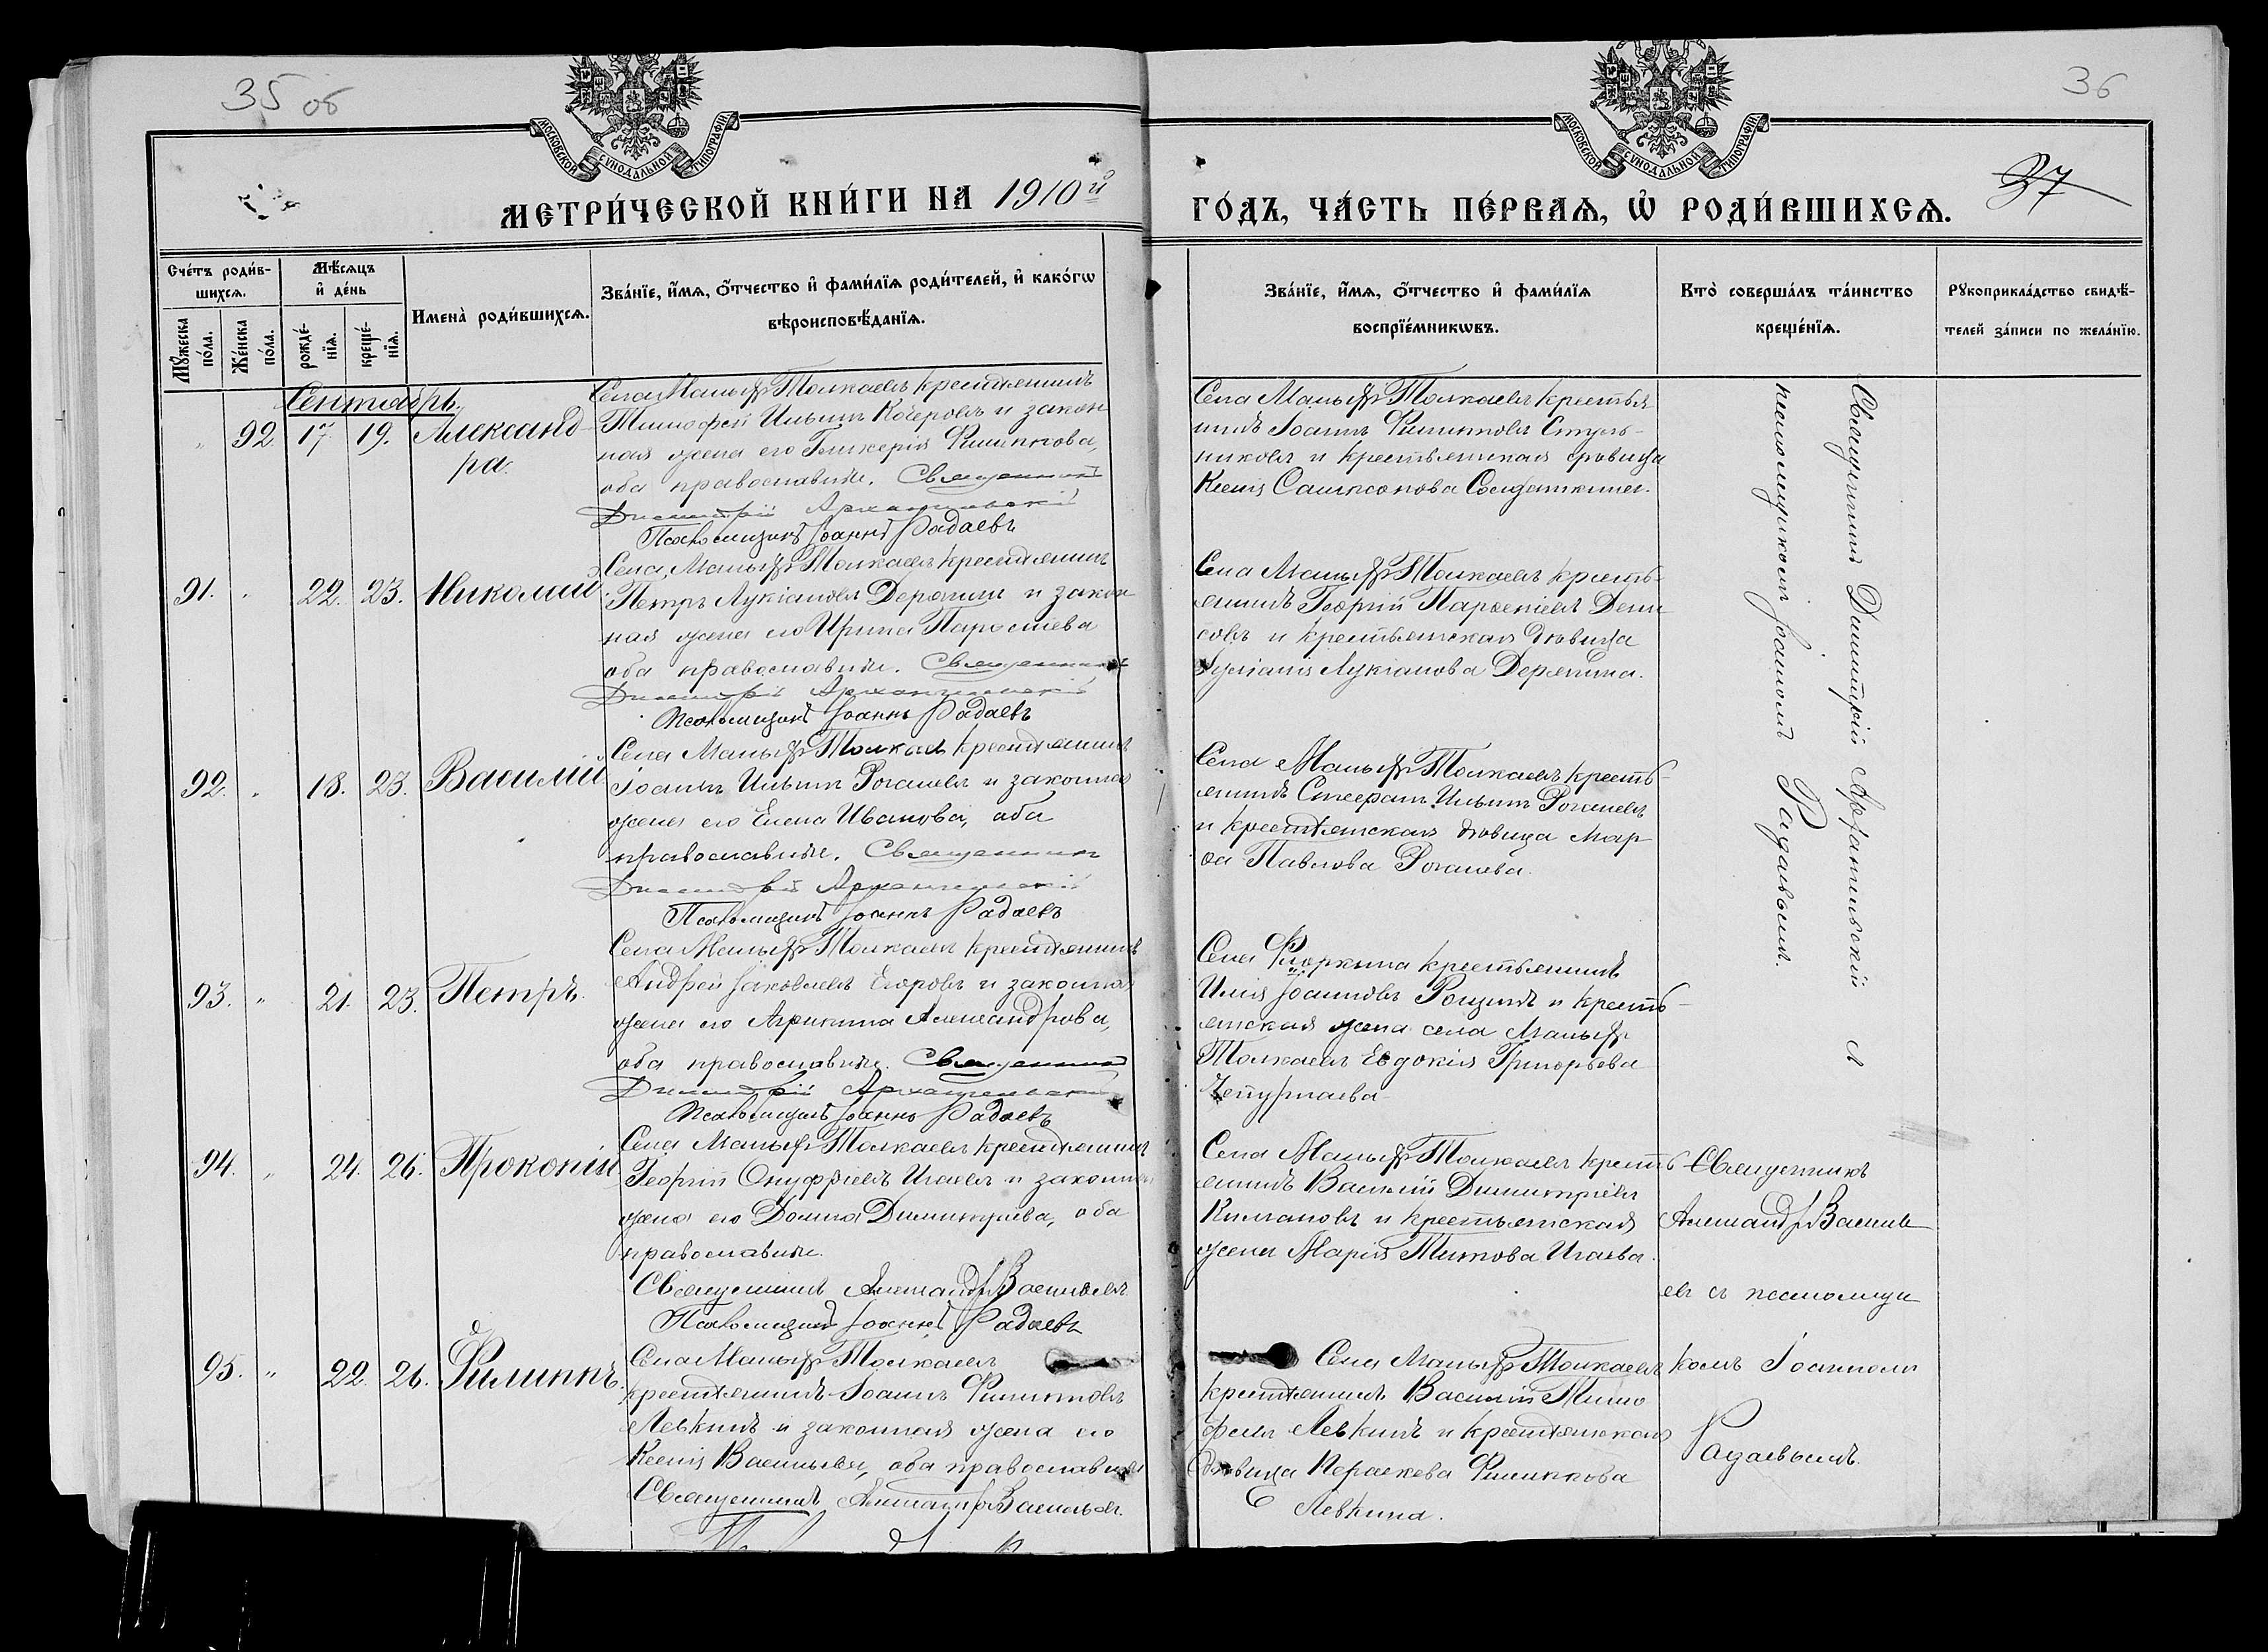 35 об
36
37
МОСКОВСКОЙ СѴНОДАЛЬНОЙ ТИПОГРАФІИ
МОСКОВСКОЙ СѴНОДАЛЬНОЙ ТИПОГРАФІИ
МЕТРИ́ЧЕСКОЙ КНИ́ГИ НА 1910й
ГО́ДЪ, ЧА́СТЬ ПЕ́РВАѦ, Ѡ҆ РОДИ́ВШИХСѦ.
Сче́тъ роди́в-
шихсѧ.
Мꙋ́жеска по́ла.
Же́нска по́ла.
Мѣ́сѧцъ
и҆ де́нь
рожде́-
нїѧ.
креще́-
нїѧ.
Имена̀ роди́вшихсѧ.
Зва́нїе, и҆́мѧ, ѻ҆́тчество и҆ фами́лїѧ роди́телей, и҆ како́гѡ
вѣроисповѣ́данїѧ.
Зва́нїе, и҆́мѧ, ѻ҆́тчество и҆ фами́лїѧ
воспрїе́мникѡвъ.
Кто̀ соверша́лъ та́инство
креще́нїѧ.
Рꙋкоприкла́дство свидѣ́-
телей за́писи по жела́нїю.
Сентябрь.
„ 92. 17. 19. Александ-
ра.
Села Малыхъ Толкаевъ крестьянинъ
Тимофей Ильинъ и закон
ная жена его Гликерія Филиппова,
оба православные. Священникъ
Димитрій Архангельскій
Псаломщикъ Іоаннъ Радаевъ
Села Малыхъ Толкаевъ крестья
нинъ Іоаннъ Филипповъ Стуль-
никовъ и крестьянская дѣвица
Ксенія Самсонова
91. „ 22. 23. Николай
Села Малыхъ Толкаевъ крестьянинъ
Петръ Лукіановъ Дерянинъ и закон
ная жена его Ирина
оба православные. Священникъ
Димитрій Архангельскій
Псаломщикъ Іоаннъ Радаевъ
Села Малыхъ Толкаевъ кресть-
янинъ Георгій Парѳеніевъ Дени
совъ и крестьянская дѣвица
Іуліанія Лукіанова Дерянина.
92. „ 18. 23. Василій
Села Малыхъ Толкаевъ крестьянинъ
Іоаннъ Ильинъ Рогачевъ и законная
жена его Елена Иванова, оба
православные. Священникъ
Димитрій Архангельскій
Псаломщикъ Іоаннъ Радаевъ
Села Малыхъ Толкаевъ кресть-
янинъ Стефанъ Ильинъ Рогачевъ
и крестьянская дѣвица Мар-
ѳа Павлова Рогачева.
93. „ 21. 23. Петръ.
Села Малыхъ Толкаевъ крестьянинъ
Андрей Іаковлевъ Егоровъ и законная
жена его Агрипина Александрова,
оба православные. Священникъ
Димитрій Архангельскій
Псаломщикъ Іоаннъ Радаевъ
Села крестьянинъ
Илія Іоанновъ Рощинъ и кресть-
янская жена села Малыхъ
Толкаевъ Евдокія Григорьева
94. „ 24. 26. Прокопій
Села Малыхъ Толкаевъ крестьянинъ
Георгій Онуфріевъ Игаевъ и законная
жена его Домна Димитріева, оба
православные.
Священникъ Александръ Васильевъ
Псаломщикъ Іоаннъ Радаевъ
Села Малыхъ Толкаевъ кресть-
янинъ Василій Димитріевъ
и крестьянская
жена Марія Титова Игаева.
95. „ 22. 26. Филиппъ.
Села Малыхъ Толкаевъ
крестьянинъ Іоаннъ Филипповъ
Левкинъ и законная жена его
Ксенія Васильева, оба православные
Священникъ Александръ Васильевъ.
Села Малыхъ Толкаевъ
крестьянинъ Василій Тимо
феевъ Левкинъ и крестьянская
дѣвица Параскева Филиппова
Левкина.
Священникъ Димитрій Архангельскій съ
псаломщикомъ Іоанномъ Радаевымъ.
Священникъ
Александръ Василь
евъ съ псаломщи
комъ Іоанномъ
Радаевымъ.